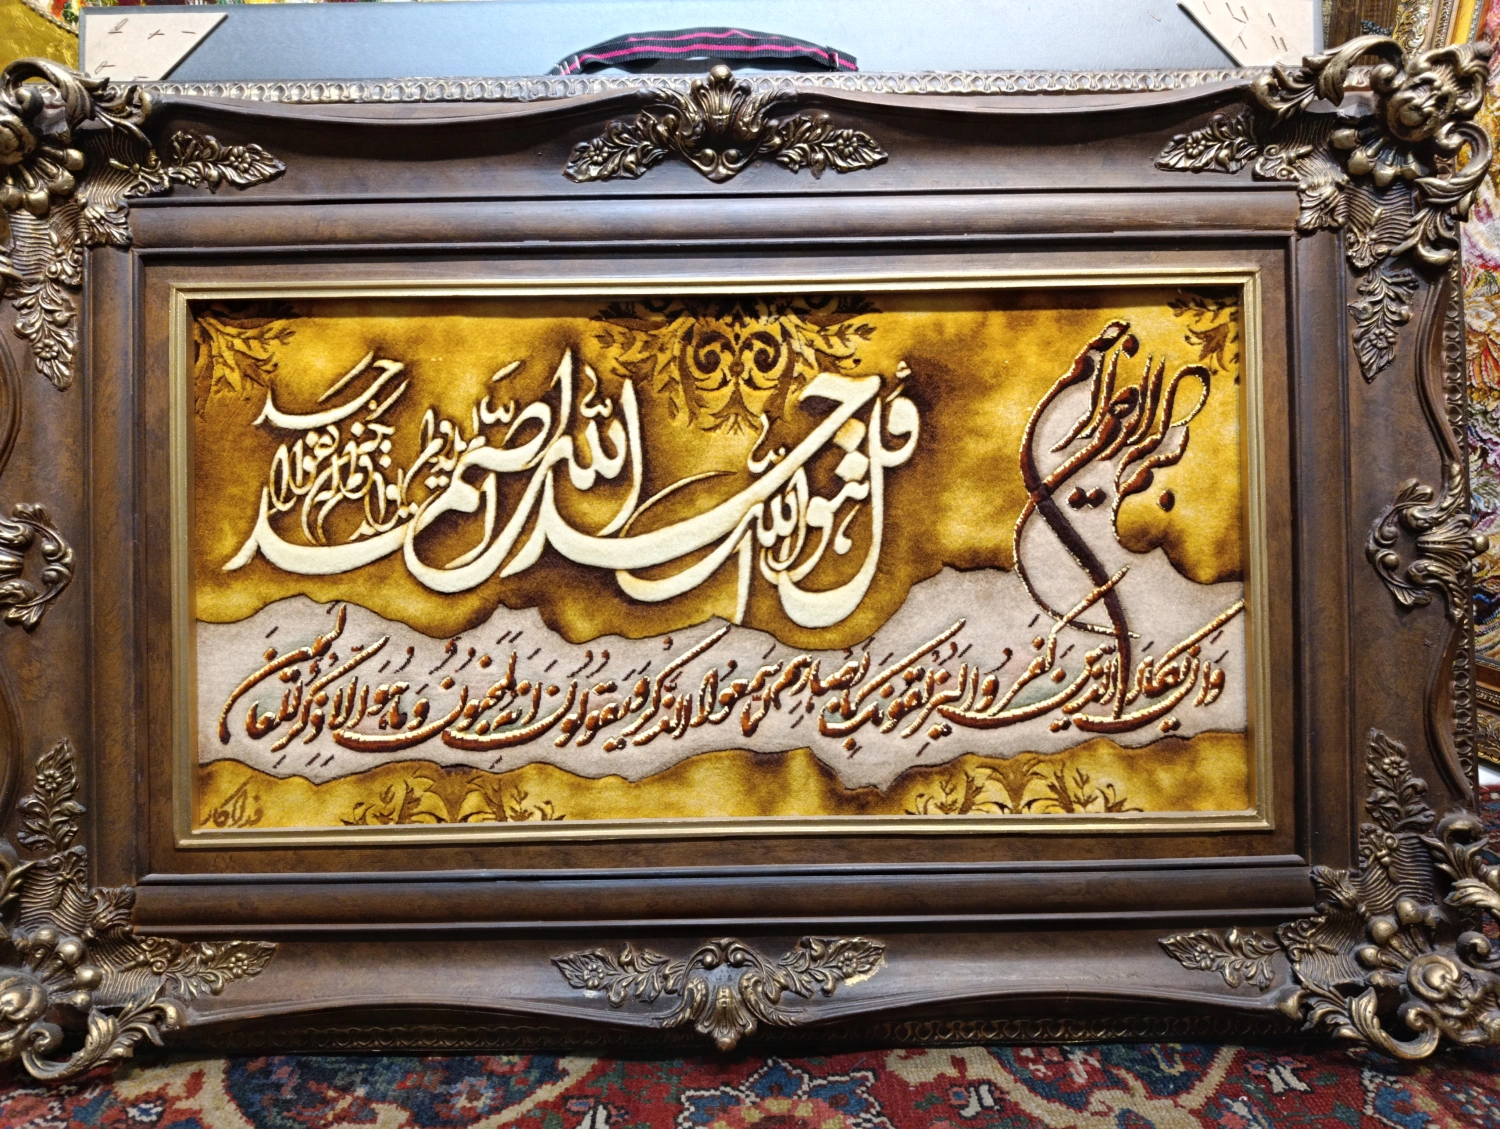 بسم الله الرحمن الرحیم
قل هو الله احد الله الصمد لم یلد و لم یولد و لم یکن له کفوا احد
وان یکاد الذین کفروا لیزلقونک بابصارهم لما سمعوا الذکر و یقولون انه لمجنون و ما هو الا ذکر للعالمین
فداکار